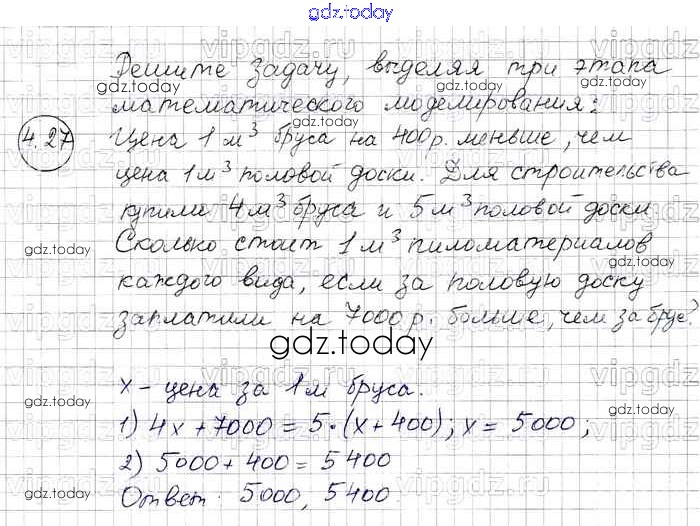 gdz.today
Решите задачу, выделяя три этапа
математического моделирования:
4.27
Цена 1 м³ бруса на 400р. меньше, чем
цена 1м³ половой доски. Для строительства
купили 4м³ бруса и 5м³ половой доски
Сколько стоит 1м³ пиломатериалов
каждого вида, если за половую доску
заплатили на 7000р. больше, чем за брус?
gdz.today
x - цена за 1м бруса.
1) 4x + 7000 = 5·(x + 400); x = 5000;
2) 5000 + 400 = 5 400
Ответ: 5000, 5400